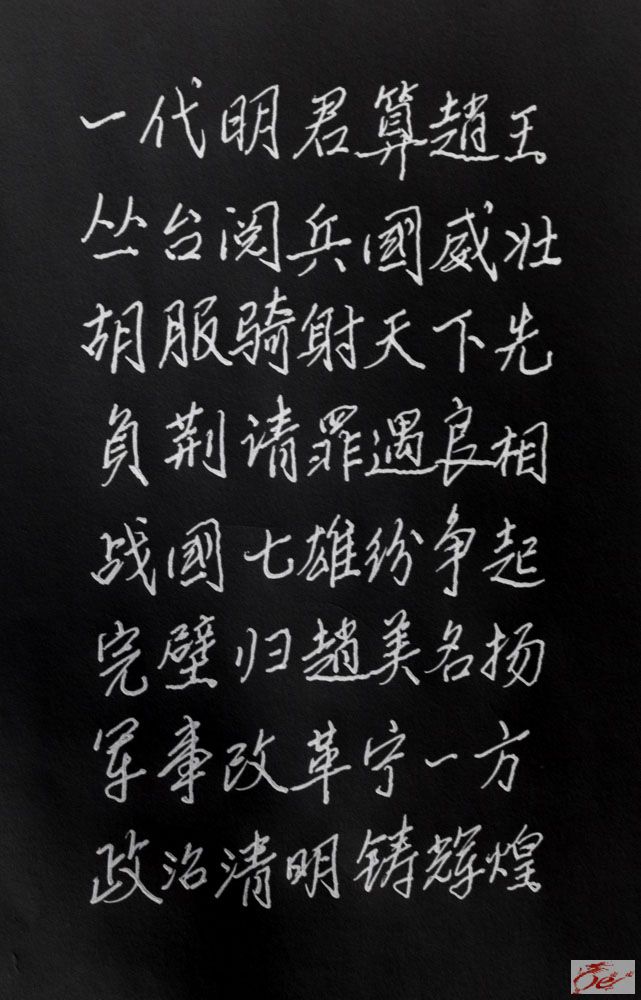 一代明君算趙王
丛台阅兵國威壮
胡服骑射天下先
負荆请罪遇良相
战國七雄纷争起
完璧归趙美名扬
军事改革宁一方
政治清明铸辉煌